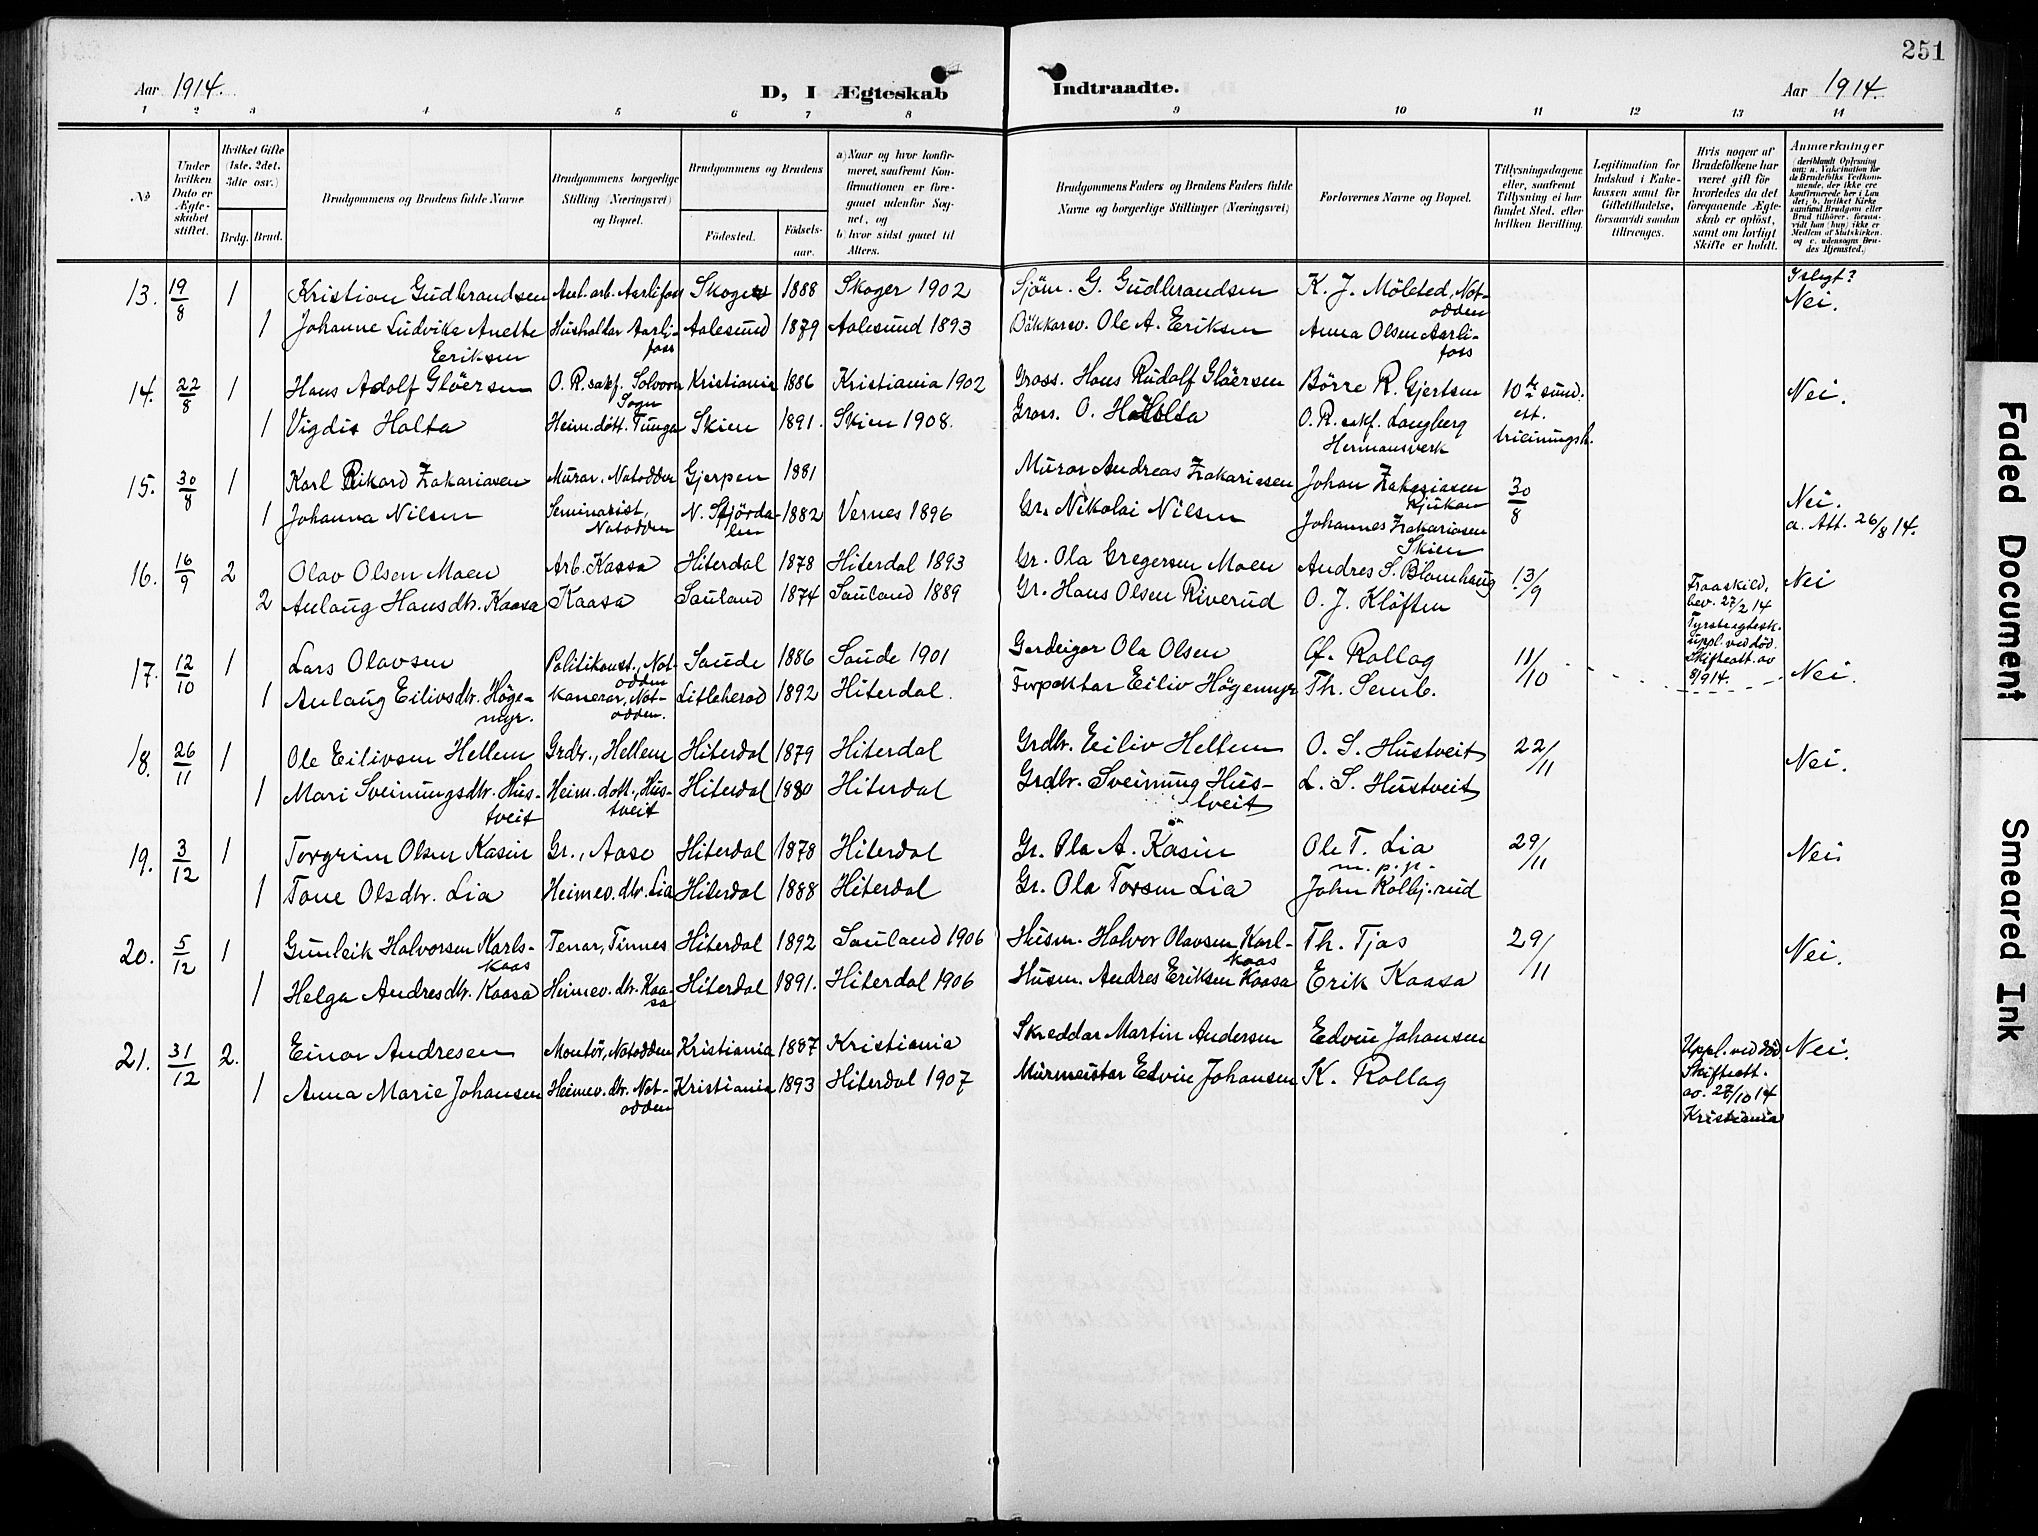 251
Aar 1914.
D, I Ægteskab Indtraadte.
Aar 1914.
1 2 3 4 5 6 7 8 9 10 11 12 13 14
No
Under hvilken Dato er Ægteskabet stiftet.
Hvilket Gifte (1ste, 2det, 3die osv.)
Brdg. Brud.
Brudgommens og Brudens fulde Navne
Brudgommens borgerlige Stilling (Næringsvei) og Bopæl.
Brudgommens og Brudens
Fødested.
Fødselsaar.
a) Naar og hvor konfirmeret, saafremt Konfirmationen er foregaaet udenfor Sognet, og
b) hvor sidst gaaet til Alters.
Brudgommens Faders og Brudens Faders fulde Navne og borgerlige Stillinger (Næringsvei)
Forlovernes Navne og Bopæl.
Tillysningsdagene eller, saafremt Tillysning ei har fundet Sted, efter hvilken Bevilling.
Legitimation for Indskud i Enkekassen samt for Giftetilladelse, forsaavidt saadan tiltrænges.
Hvis nogen af Brudefolkene har været gift før hvorledes da det foregaaende Ægteskab er opløst, samt om lovligt Skifte er holdt.
Anmærkninger
(deriblandt Oplysning om: a. Vakcination for de Brudefolks Vedkommende, der ikke ere konfirmerede her i Landet; b. hvilket Kirkesamfund Brudgom eller Brud tilhører, forsaavidt han (hun) ikke er Medlem af Statskirken, og c. udensogns Brudes Hjemsted.
13. 19/8 1 Kristian Gudbrandsen Anl.arb. Aarlifoss Skoger 1888 Skoger 1902 Sjöm. G. Gudbrandsen K. J. Mölsted, Notodden I slegt? Nei.
1 Johanne Ludvike Anette Eriksen Husholdar Aarlifoss Aalesund 1879 Aalesund 1893 Bakkarsv. Ole A. Eriksen Anna Olsen Aarlifoss
14. 22/8 1 Hans Adolf Glöersen O.R.sakf. Solvorn Sogn Kristiania 1886 Kristiania 1902 Gross. Hans Rudolf Glöersen Börre R. Gjertsen 10de sund. Nei.
1 Vigdis Holta Heim.dött. Tunga Skien 1891. Skien 1908. Gross. O. Holta O.R.sakf. Langberg Hermansverk est. trieiningsh.
15. 30/8 1 Karl Rikard Zakariasen Murar, Notodden Gjerpen 1881 Murar Andreas Zakariasen Johan Zakariasen Rjukan 30/8 Nei.
1 Johanna Nilsen Seminarist, Notodden N. Stjördalen 1882 Vernes 1896 Gr. Nikolai Nilsen Johannes Zakariasen Skien a. Att. 26/8 14.
16. 16/9 2 Olav Olsen Moen Arb. Kaasa Hiterdal 1878 Hiterdal 1893 Gr. Ola Gregersen Moen Andres S. Blomhaug 13/9 Fraaskild, bev. 27/2 14 Nei
2 Aulaug Hansdtr. Kaasa Kaasa Sauland 1874 Sauland 1889 Gr. Hans Olsen Riverud O. J. Klöften Fyrstegtesk. uppl. ved död. Skifteatt. av 8/9 14.
17. 12/10 1 Lars Olavsen Politikonst., Notodden Saude 1886 Saude 1901 Gardeigar Ola Olsen Q. Rollag 11/10 Nei.
1 Aulaug Eilivsdtr. Högemyr. Notodden. Litleherad 1892 Hiterdal. Forpaktar Eiliv Högemyr Th. Semb.
18. 26/11 1 Ole Eilivsen Hellem Grdbr., Hellem Hiterdal 1879 Hiterdal Grdbr. Eiliv Hellem O. S. Hustveit 22/11 Nei.
1 Mari Sveinungsdtr. Hustveit Heim.dott., Hustveit Hiterdal 1880 Hiterdal Grdbr. Sveinung Hustveit L. S. Hustveit
19. 3/12 1 Torgrim Olsen Kasin Gr., Aase Hiterdal 1878 Hiterdal Gr. Ola A. Kasin Ole T. Lia m.p.p. 29/11 Nei
1 Tone Olsdtr. Lia Heimev. dtr. Lia Hiterdal 1888 Hiterdal Gr. Ola Torsen Lia John Kolbj.rud
20. 5/12 1 Gunleik Halvorsen Karlskaas Tenar, Tinnes Hiterdal 1892 Sauland 1906 Husm. Halvor Olavsen Karlkaas Th. Tjas 29/11 Nei.
1 Helga Andresdtr. Kaasa Heimev. dtr. Kaasa Hiterdal 1891. Hiterdal 1906 Husm. Andres Eriksen Kaasa Erik Kaasa
21. 31/12 2. Einar Andresen Montör, Notodden Kristiania 1887 Kristiania Skreddar Martin Andersen Edvin Johansen Uppl. ved död Nei.
1 Anna Marie Johansen Heimev. dtr. Notodden Kristiania 1893 Hiterdal 1907 Murmeistar Edvin Johansen K. Rollag Skifteatt. av. 27/10 14 Kristiania
Faded Document
Smeared Ink